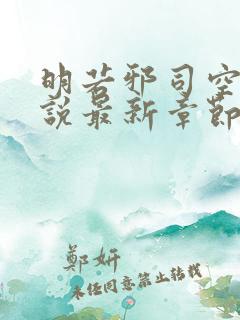 明若邪司空
说最新章節
鄭妍
未经同意禁止转载